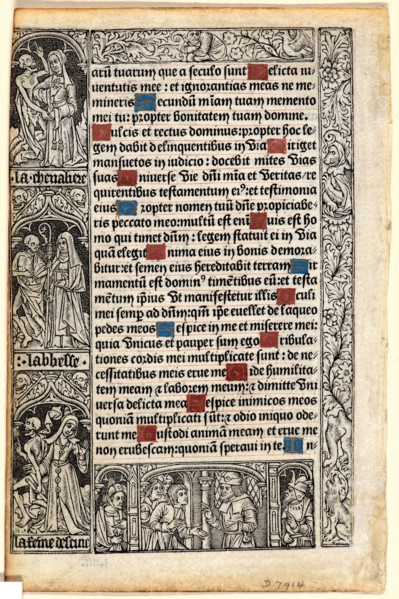 arū tuarum que a seculo sunt elicta iu
uentutis mee : et ignorantias meas ne me
mineris ecundū m̄iam tuam memento
mei tu: propter bonitatem tuam domine.
ulcis et rectus dominus: propter hoc le
gem dabit delinquentibus in via iriget
mansuetos in iudicio : docebit mites vias
suas niuerse vie dn̄i m̄ia et veritas/re
quirentibus testamentum eiꝰ: et testimonia
eius ropter nomen tuū dn̄e propiciabe-
ris peccato meo: multū est enī uis est ho
mo qui timet dn̄m : legem statuit ei in via
quā elegit nima eius in bonis demora/
bitur: et semen eius hereditabit terram it
mamentū est dominꝰ timētibus eū: et testa
mētum ip̄ius vt manifestetur illis culi
mei semp ad dn̄m: qm̄ ip̄e euellet de laqueo
pedes meos espice in me et miserere mei:
quia vnicus et pauper sum ego ribula-
tiones cordis mei multiplicate sunt : de ne-
cessitatibus meis erue me ide humilita-
tem meam ⁊ laborem meum: ⁊ dimitte vni
uersa delicta mea espice inimicos meos
quoniā multiplicati sūt: ⁊ odio iniquo ode-
runt me ustodi animā meam et erue me
non erubescam: quoniā speraui in te. n-
la chevaliere
: labbesse :
D 7914